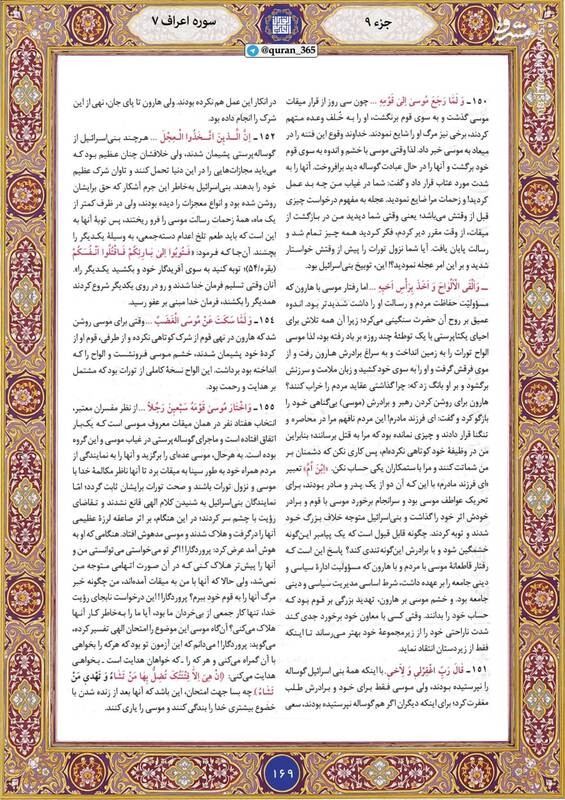 جزء ۹
سوره اعراف ۷
@quran_365
مشرق
۱۵۰ـ وَ لَمّا رَجَعَ مُوسیٰ اِلیٰ قَوْمِهِ ... چون سی روز از قرار میقات
موسی گذشت و به سوی قوم برنگشت، او را به خُلف وعده متهم
کردند، برخی نیز مرگ او را شایع نمودند. خداوند وقوع این فتنه را در
میعاد به موسی خبر داد. لذا وقتی موسی با خشم و اندوه به سوی قوم
خود برگشت و آنها را در حال عبادت گوساله دید برافروخت. آنها را به
شدت مورد عتاب قرار داد و گفت: شما در غیاب من چه بد عمل
کردید! و زحمات مرا ضایع نمودید. عجله به مفهوم درخواست چیزی
قبل از وقتش می‌باشد؛ یعنی وقتی شما دیدید من در بازگشت از
میقات، از وقت مقرر دیر کردم، فکر کردید همه چیز تمام شد و
رسالت پایان یافت. آیا شما نزول تورات را پیش از وقتش خواستار
شدید و بر این امر عجله نمودید؟! این، توبیخ بنی‌اسرائیل بود.
ـ وَ اَلْقَی الْاَلْوٰاحَ وَ اَخَذَ بِرَأْسِ اَخیهِ ... اما رفتار موسی با هارون که
مسؤولیّت حفاظت مردم و رسالت او را داشت شدیدتر بود. اندوه
عمیق بر روح آن حضرت سنگینی می‌کرد؛ زیرا آن همه تلاش برای
احیای یکتاپرستی با یک توطئهٔ چند روزه بر باد رفته بود، لذا موسی
الواح تورات را به زمین انداخت و به سراغ برادرش هارون رفت و از
موی فرقش گرفت و او را به سوی خود کشید و زبان ملامت و سرزنش
برگشود و بر او بانگ زد که: چرا گذاشتی عقاید مردم را خراب کنند؟
هارون برای روشن کردن رهبر و برادرش (موسی) بی‌گناهی خود را
بازگو کرد و گفت: ای فرزند مادرم! این مردم نافهم مرا در محاصره و
تنگنا قرار دادند و چیزی نمانده بود که مرا به قتل برسانند؛ بنابراین
من در وظیفهٔ خود کوتاهی نکرده‌ام، پس کاری نکن که دشمنان بر
من شماتت کنند و مرا با ستمکاران یکی حساب نکن. «اِبْنَ اُمَّ» تعبیر
«ای فرزند مادرم» با این که آن دو از یک پدر و مادر بودند، برای
تحریک عواطف موسی بود و سرانجام برخورد موسی با قوم و برادر
خودش اثر خود را گذاشت و بنی‌اسرائیل متوجه خلاف بزرگ خود
شدند و توبه کردند. چگونه قابل قبول است که یک پیامبر این‌گونه
خشمگین شود و با برادرش این‌گونه تندی کند؟ پاسخ این است که
رفتار قاطعانهٔ موسی با مردم و با هارون که مسؤولیت ادارهٔ سیاسی و
دینی جامعه را بر عهده داشت، شرط اساسی مدیریت سیاسی و دینی
جامعه بود. و خشم موسی بر هارون، تهدید بزرگی بر قوم بود که
حساب خود را بدانند. وقتی کسی با معاون خود برخورد جدی کند
شدت ناراحتی خود را از زیرمجموعهٔ خود بهتر می‌رساند تا اینکه
فقط از زیردستان انتقاد نماید.
۱۵۱ـ قٰالَ رَبِّ اغْفِرْلی وَ لِاَخی. با اینکه همهٔ بنی اسرائیل گوساله
را نپرستیده بودند، ولی موسی فقط برای خود و برادرش طلب
مغفرت کرد؛ برای اینکه دیگران اگر هم گوساله نپرستیده بودند، سعی
در انکار این عمل هم نکرده بودند. ولی هارون تا پای جان، نهی از این
شرک را انجام داده بود.
۱۵۲ـ اِنَّ الَّذینَ اتَّخَذُوا الْعِجْلَ ... هرچند بنی‌اسرائیل از
گوساله‌پرستی پشیمان شدند، ولی خلافشان چنان عظیم بود که
می‌باید مجازات‌هایی را در این دنیا تحمل کنند و تاوان شرک عظیم
خود را بدهند. بنی‌اسرائیل به‌خاطر این جرم آشکار که حق برایشان
روشن شده بود و انواع معجزات را دیده بودند، ولی در ظرف کمتر از
یک ماه، همهٔ زحمات رسالت موسی را فرو ریختند، پس توبهٔ آنها به
این است که باید طعم تلخ اعدام دسته‌جمعی، به وسیلهٔ یکدیگر را
بچشند. آن‌جا که فرمود: «فَتُوبُوا اِلیٰ بٰارِئِکُمْ فَاقْتُلُوا اَنْفُسَکُمْ
(بقره/۵۴)؛ توبه کنید به سوی آفریدگار خود و بکشید یکدیگر را».
آنان وقتی تسلیم فرمان خدا شدند و رو در روی یکدیگر شروع کردند
همدیگر را بکشند، فرمان خدا مبنی بر عفو رسید.
۱۵۴ـ وَ لَمّا سَکَتَ عَنْ مُوسَی الْغَضَبُ ... وقتی برای موسی روشن
شد که هارون در نهی قوم از شرک کوتاهی نکرده و از طرفی، قوم او از
کردهٔ خود پشیمان شدند، خشم موسی فرونشست و الواح را که
انداخته بود برداشت. این الواح نسخهٔ کاملی از تورات بود که مشتمل
بر هدایت و رحمت بود.
۱۵۵ـ وَ اخْتٰارَ مُوسیٰ قَوْمَهُ سَبْعینَ رَجُلاً ... از نظر مفسران معتبر،
انتخاب هفتاد نفر در همان میقات معروف موسی است که یک‌بار
اتفاق افتاده است و ماجرای گوساله‌پرستی در غیاب موسی و این گروه
بوده است. به هرحال، موسی عده‌ای را برگزید و آنها را به نمایندگی از
مردم همراه خود به طور سینا به میقات برد تا آنها ناظر مکالمهٔ خدا با
موسی و نزول تورات باشند و صحت تورات برایشان ثابت گردد؛ امّا
نمایندگان بنی‌اسرائیل به شنیدن کلام الهی قانع نشدند و تقاضای
رؤیت با چشم سر کردند؛ در این هنگام، بر اثر صاعقه لرزهٔ عظیمی
آنها را درگرفت و هلاک شدند و موسی مدهوش افتاد. هنگامی که او به
هوش آمد عرض کرد: پروردگارا! اگر تو می‌خواستی می‌توانستی من و
آنها را پیش‌تر هلاک کنی که در آن صورت اتهامی متوجه من
نمی‌شد، ولی حالا که آنها با من به میقات آمده‌اند، من چگونه خبر
مرگ آنها را به قوم خود ببرم؟ پروردگارا! این درخواست نابجای رؤیت
خدا، تنها کار جمعی از بی‌خردان ما بود، آیا ما را به‌خاطر کار آنها
هلاک می‌کنی؟ آنگاه موسی این موضوع را امتحان الهی تفسیر کرده،
می‌گوید: پروردگارا! می‌دانم که این آزمون تو بود که هرکه را بخواهی
با آن گمراه می‌کنی و هر که را ـ که خواهان هدایت است ـ بخواهی
هدایت می‌کنی: (اِنْ هِیَ اِلّٰا فِتْنَتُکَ تُضِلُّ بِهٰا مَنْ تَشٰاءُ وَ تَهْدی مَنْ
تَشٰاءُ) چه بسا جهت امتحان، این باشد که آنها بعد از زنده شدن با
خضوع بیشتری خدا را بندگی کنند و موسی را یاری کنند.
۱۶۹